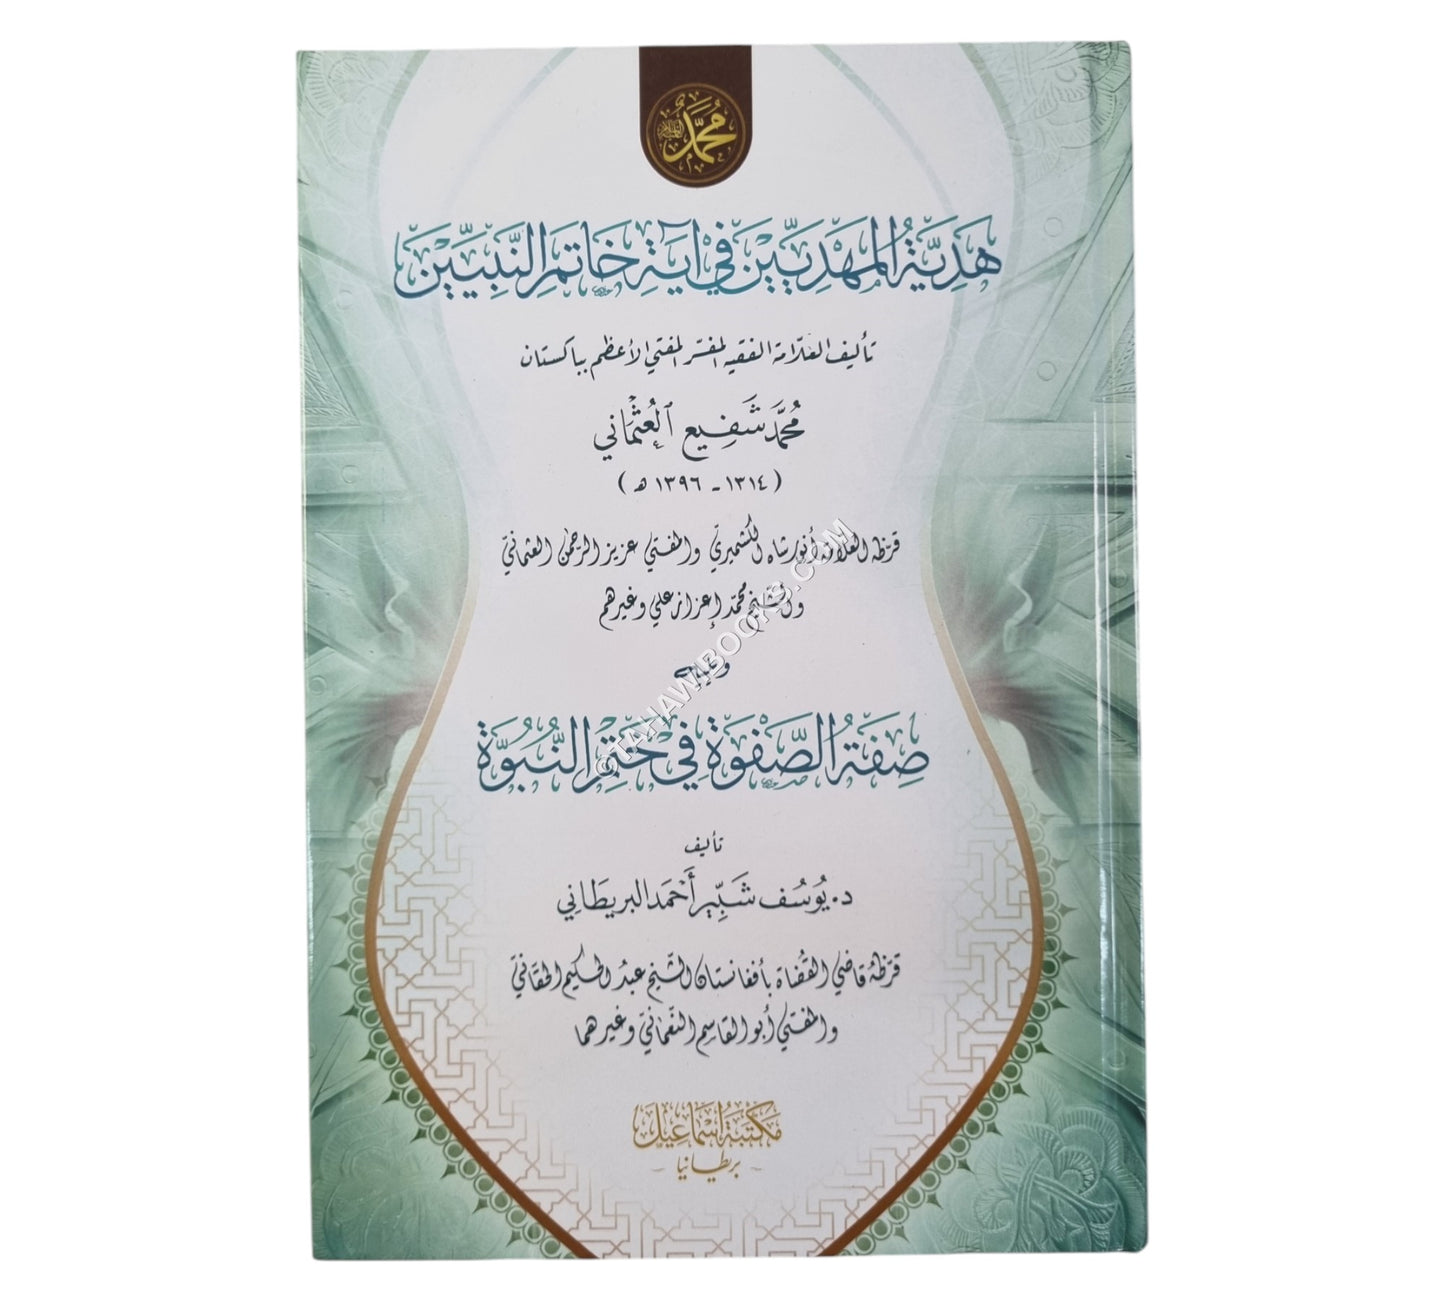 محمد
هَدِيَّةُ المَهْدِيِّيْنَ فِي آيَةِ خَاتَمِ النَّبِيِّيْنَ
تأليف العلّامة الفقيه المفسّر المفتي الأعظم بباكستان
مُحَمَّد شَفِيع العُثْمَانِي
(١٣١٤ - ١٣٩٦ هـ)
قرّظه العلّامة أنور شاه الكشميري والمفتي عزيز الرحمن العثماني
والشيخ محمد إعزاز علي وغيرهم
ويليه
صِفَةُ الصَّفْوَةِ فِي خَتْمِ النُّبُوَّةِ
تأليف
د. يُوسُف شَبِّير أَحْمَد البريطَانِي
قرّظهُ قاضي القُضاة بأفغانستان الشّيخ عبدُ الحكيم الحقّانيّ
والمفتي أبو القاسم النّعمانيّ وغيرهما
مَكتَبَةُ إسْمَاعِيل
- بريطانيا -
©TAHAWIBOOKS.COM